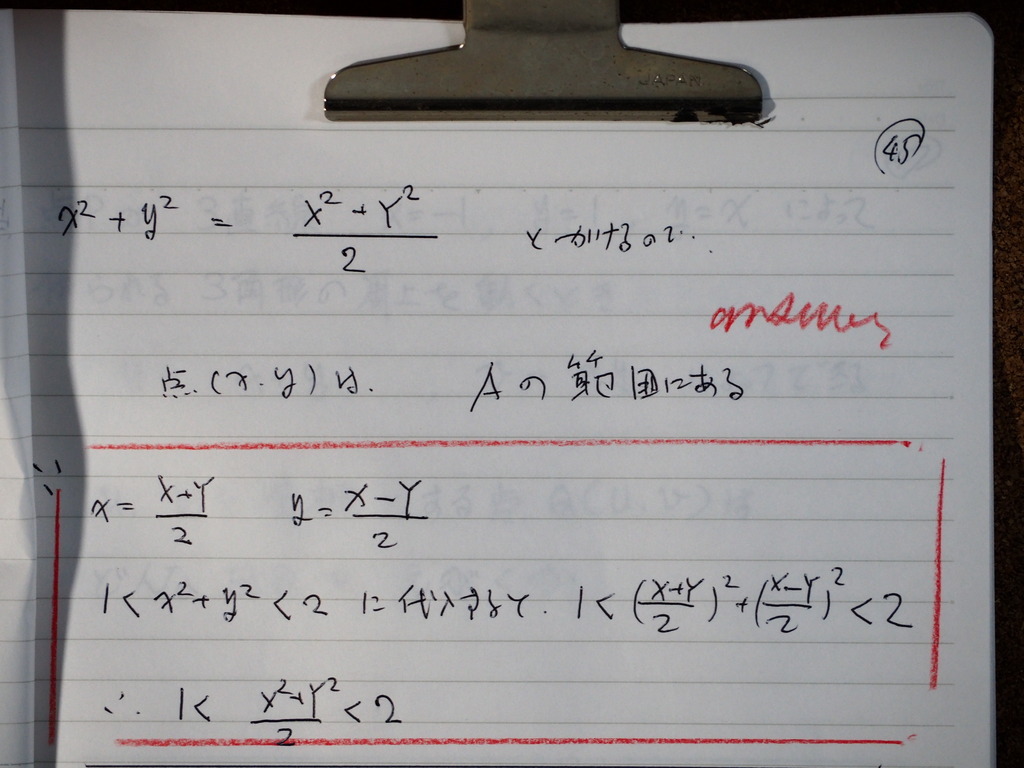 JAPAN
45
x² + y² = (X² + Y²)/2 とかけるので..
answer
点(x.y)は. Aの範囲にある
∵ x = (X+Y)/2 y = (X−Y)/2
1 < x² + y² < 2 に代入すると. 1 < ((X+Y)/2)² + ((X−Y)/2)² < 2
∴ 1 < (X²+Y²)/2 < 2